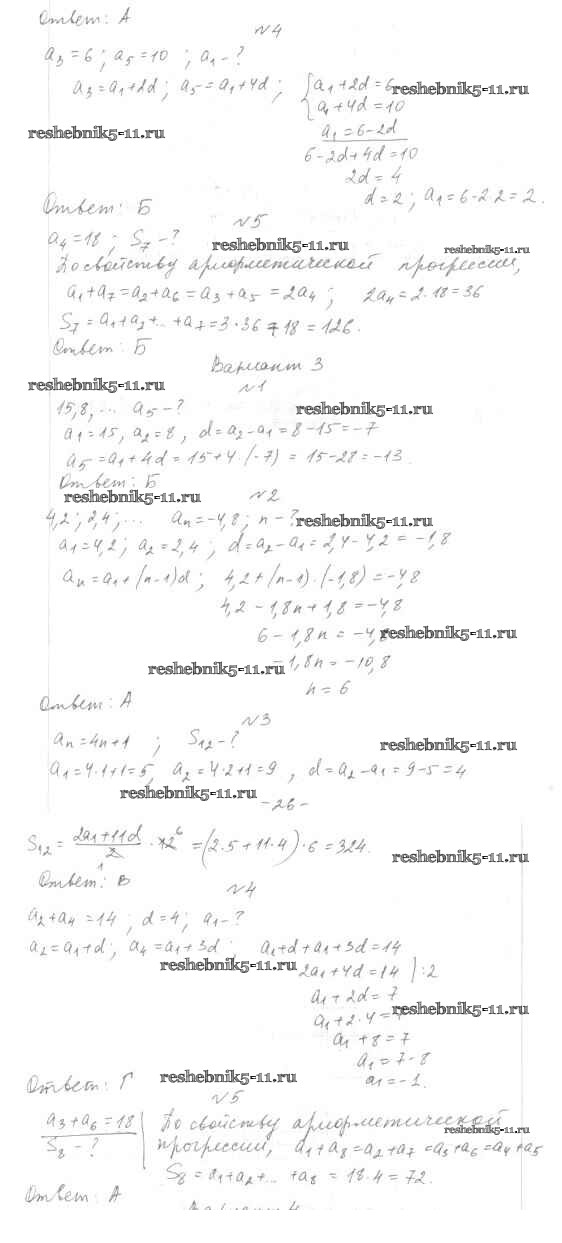 Ответ: А
№4
a₃=6; a₅=10; a₁-?
a₃=a₁+2d; a₅=a₁+4d; {a₁+2d=6
reshebnik5-11.ru
a₁+4d=10
reshebnik5-11.ru
a₁=6-2d
6-2d+4d=10
2d=4
d=2; a₁=6-2·2=2.
Ответ: Б
№5
a₄=18; S₇-?
reshebnik5-11.ru
reshebnik5-11.ru
По свойству арифметической прогрессии,
a₁+a₇=a₂+a₆=a₃+a₅=2a₄; 2a₄=2·18=36
S₇=a₁+a₂+...+a₇=3·36+18=126.
Ответ: Б
Вариант 3
reshebnik5-11.ru
№1
15,8,... a₅-?
reshebnik5-11.ru
a₁=15, a₂=8, d=a₂-a₁=8-15=-7
a₅=a₁+4d=15+4·(-7)=15-28=-13.
Ответ: Б
reshebnik5-11.ru
№2
4,2; 2,4;... aₙ=-4,8; n-?
reshebnik5-11.ru
a₁=4,2; a₂=2,4; d=a₂-a₁=2,4-4,2=-1,8
aₙ=a₁+(n-1)d; 4,2+(n-1)·(-1,8)=-4,8
4,2-1,8n+1,8=-4,8
6-1,8n=-4,8
reshebnik5-11.ru
-1,8n=-10,8
reshebnik5-11.ru
n=6
Ответ: А
№3
aₙ=4n+1; S₁₂-?
reshebnik5-11.ru
a₁=4·1+1=5, a₂=4·2+1=9, d=a₂-a₁=9-5=4
reshebnik5-11.ru
-26-
S₁₂=(2a₁+11d)/2·12=(2·5+11·4)·6=324.
reshebnik5-11.ru
Ответ: В
№4
a₂+a₄=14; d=4; a₁-?
a₂=a₁+d; a₄=a₁+3d; a₁+d+a₁+3d=14
reshebnik5-11.ru
2a₁+4d=14 |:2
a₁+2d=7
a₁+2·4=7
reshebnik5-11.ru
a₁+8=7
a₁=7-8
a₁=-1.
reshebnik5-11.ru
Ответ: Г
№5
a₃+a₆=18
S₈-?
По свойству арифметической
reshebnik5-11.ru
прогрессии, a₁+a₈=a₂+a₇=a₃+a₆=a₄+a₅
S₈=a₁+a₂+...+a₈=18·4=72.
Ответ: А